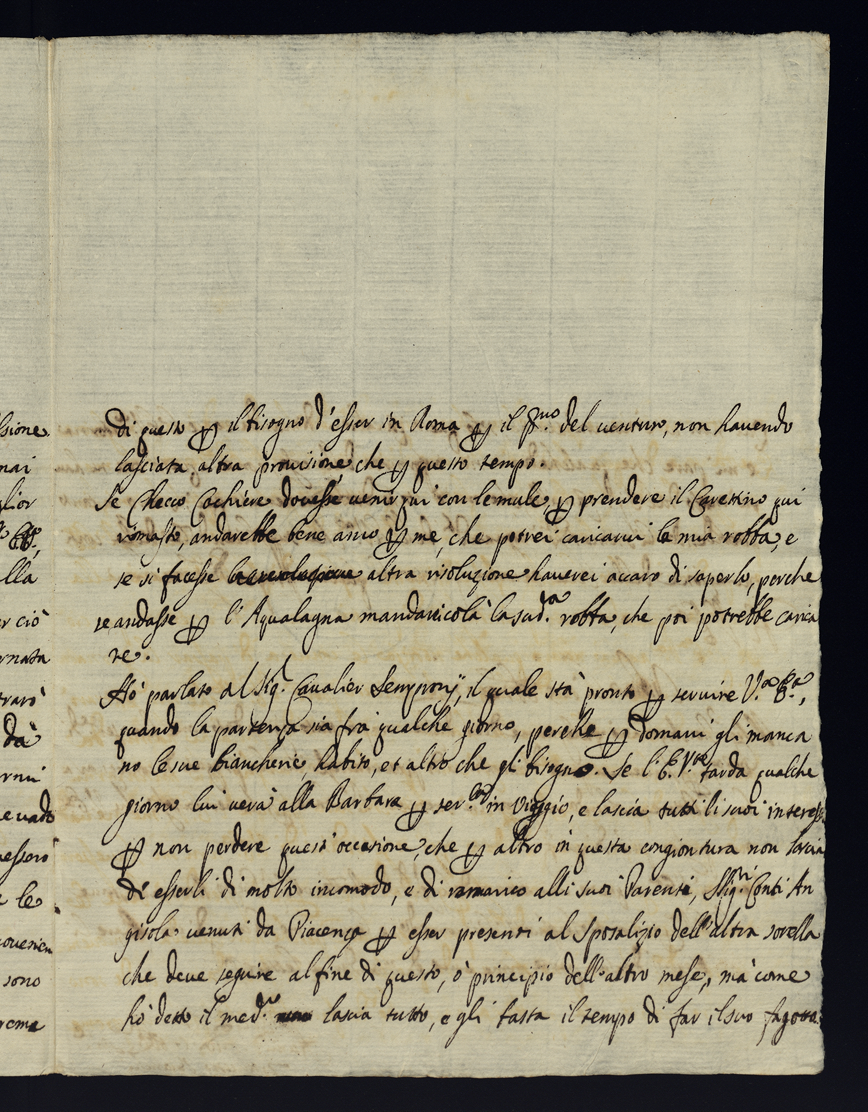 di questo ꝑ il bisogno d'esser in Roma ꝑ il p.mo del venturo, non havendo
lasciata altra provisione che ꝑ questo tempo.
Se Checco Cochiere dovesse venir qui con le mule ꝑ prendere il Carettino qui
rimasto, andarebbe bene anco ꝑ me, che potrei caricarvi la mia robba, e
se si facesse altra risoluzione haverei accaro di saperlo, perche
se andasse ꝑ l'Aqualagna mandaricola la sud.a robba, che poi potrebbe carica
re.
Hò parlato al Sig.r Cavalier Semproni, il quale stà pronto ꝑ servire V.a E.a,
quando la partenza sia frà qualche giorno, perche ꝑ domani gli manca
no le sue biancherie, habito, et altro che gli bisogna. Se l'E.V.ra tarda qualche
giorno lui verà alla Barbara ꝑ ser.la in viaggio, e lascia tutti li suoi interessi
ꝑ non perdere quest'occasione, che ꝑ altro in questa congiontura non lascia
di esserli di molto incomodo, e di ramarico alli suoi Parenti, SSig.ri Conti An
gisola venuti da Piacenza ꝑ esser presenti al Sposalizio dell'altra sorella
che deve seguire al fine di questo, ò principio dell'altro mese, mà come
hò detto il med.mo lascia tutto, e gli basta il tempo di far il suo fagotto.
ssione
mai
glior
alla
er ciò
rnata
trarò
dà
e vado
essere
e le
sono
rema